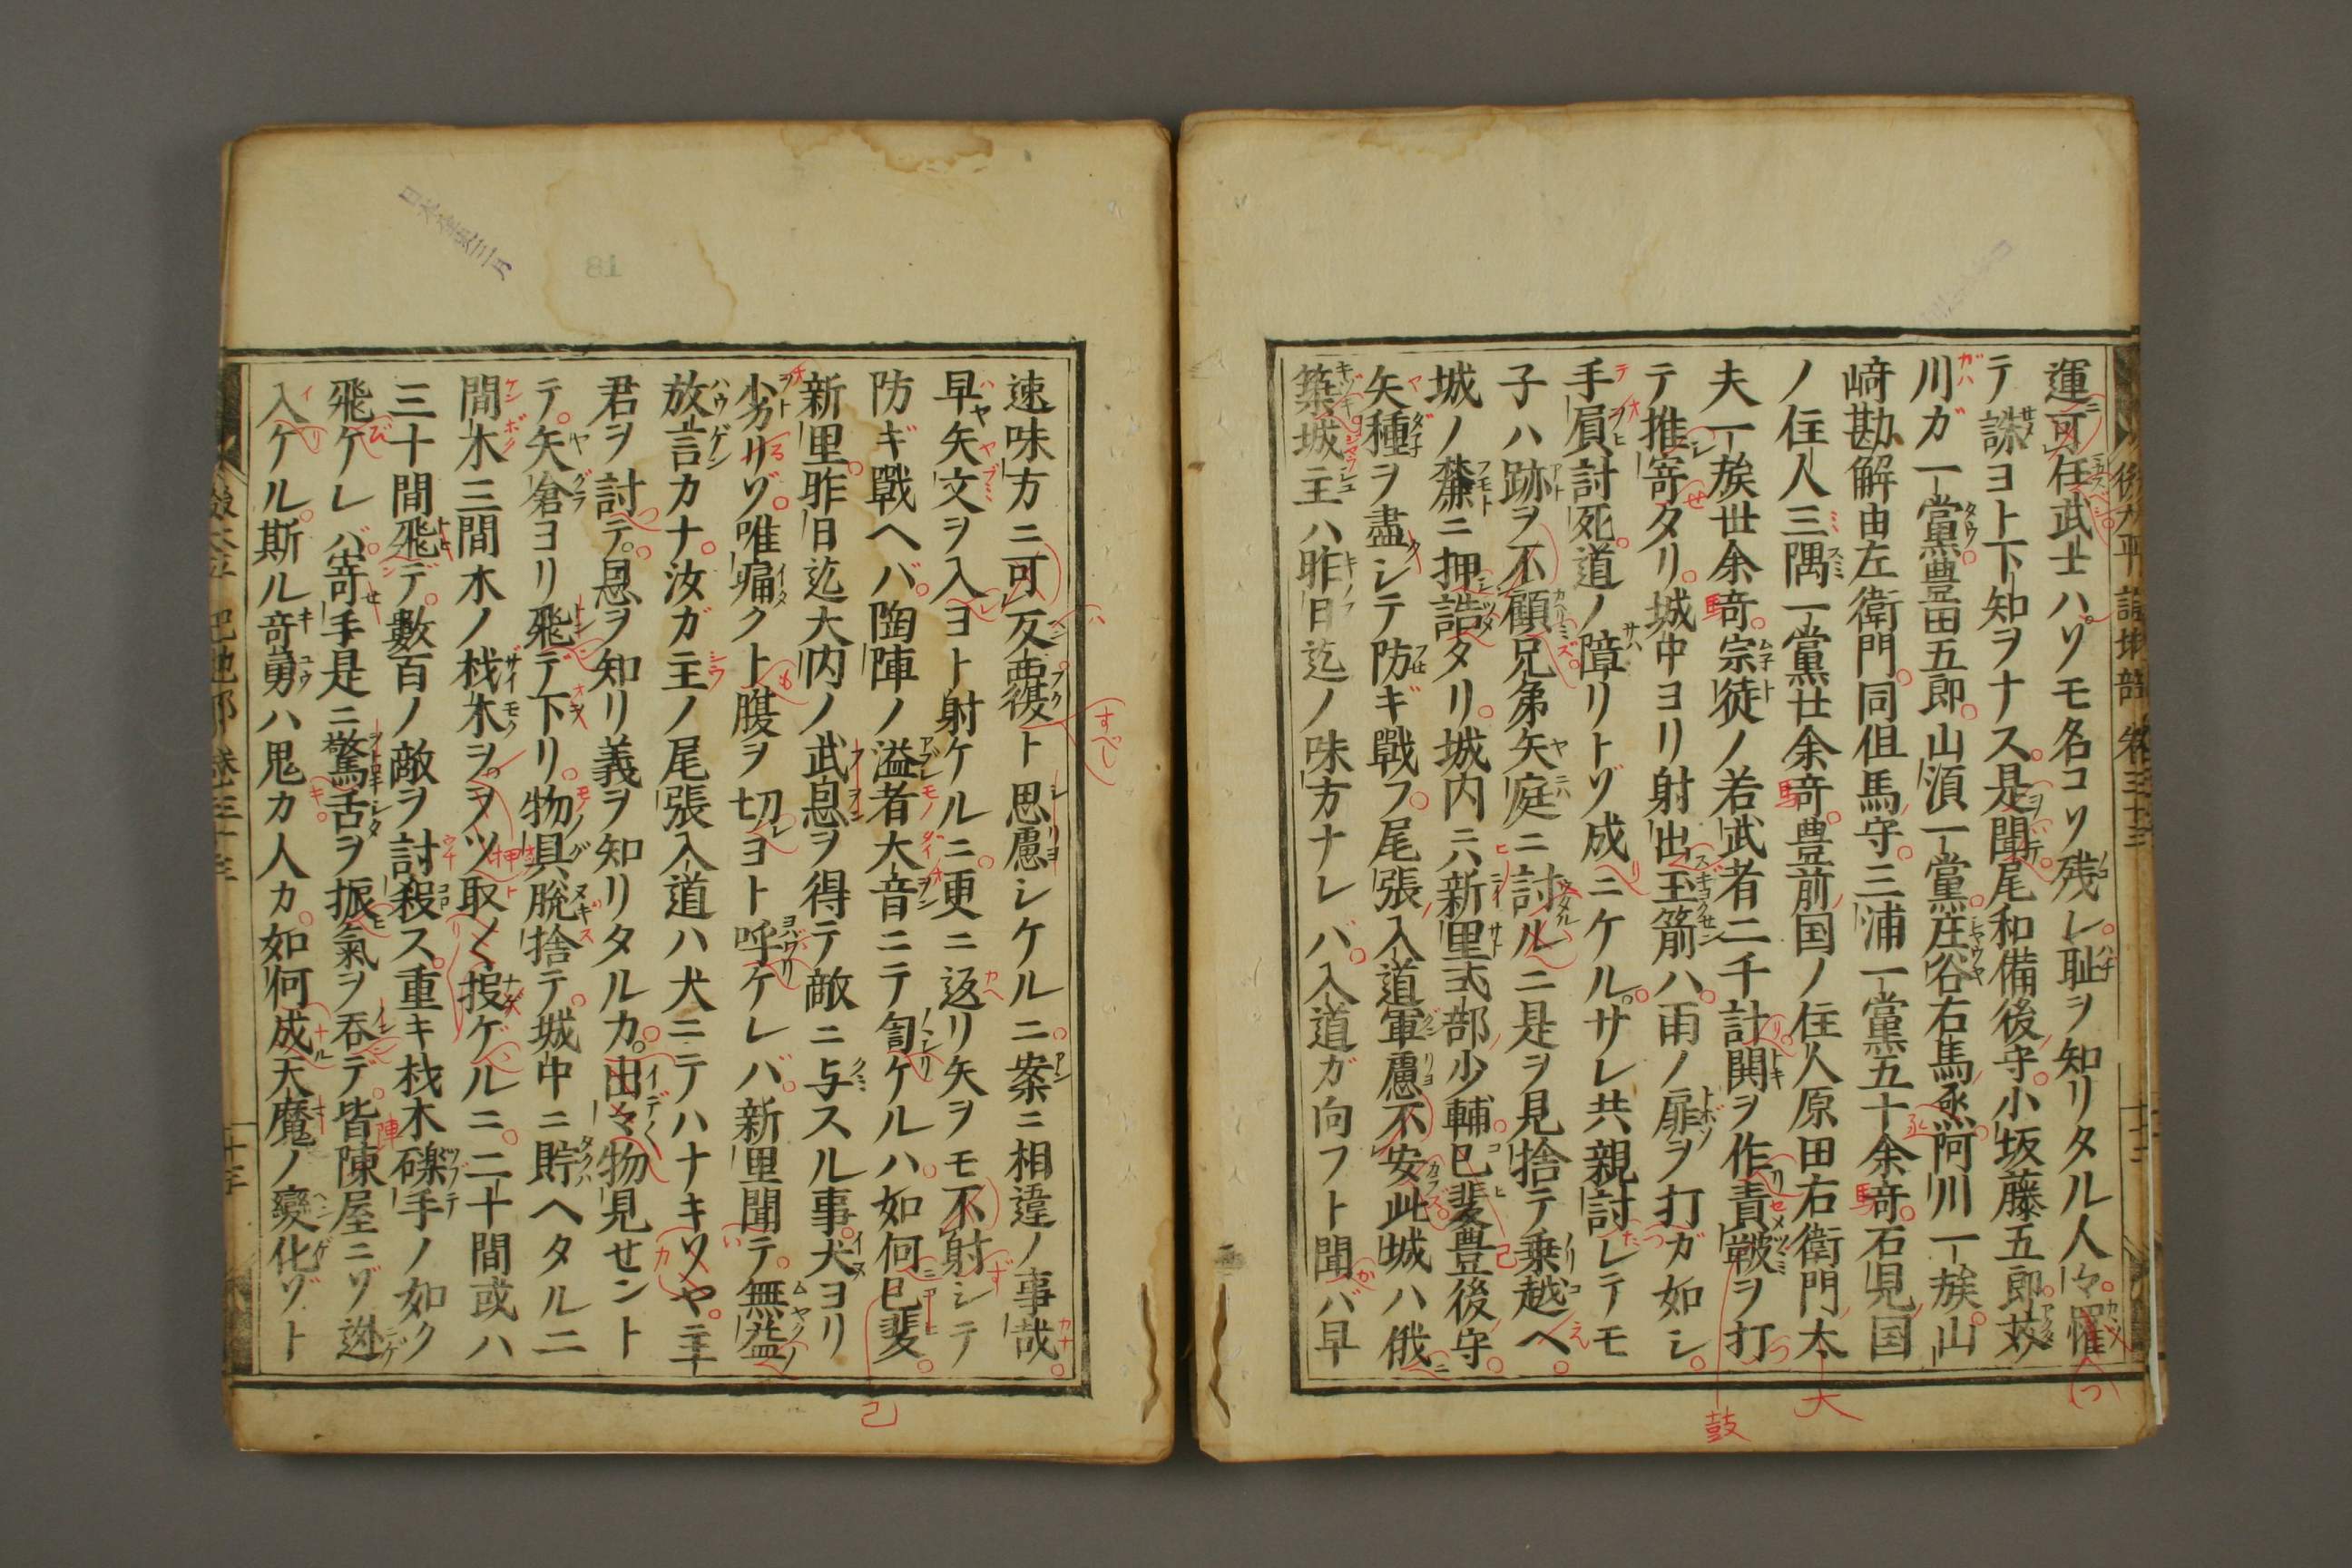 運可任武士ハソモ名コソ残レ恥ヲ知リタル人々懼
テ誅ヨト下知ヲナス是聞尾和備後守小坂藤五郎苅
川ガ一黨豊田五郎山須一黨庄谷右馬烝阿川一族山
﨑勘解由左衛門同但馬守三浦一黨五十余竒石見国
ノ住人三隅一黨廿余竒豊前国ノ住人原田右衛門太
夫一族世余竒宗徒ノ若武者二千計鬨ヲ作責皷ヲ打
テ推寄タリ城中ヨリ射出玉箭ハ雨ノ扉ヲ打ガ如シ
手屓討死道ノ障リトゾ成ニケルサレ共親討レテモ
子ハ跡ヲ不顧兄弟矢庭ニ討ルニ是ヲ見捨テ乗越ヘ
城ノ麓ニ押詰タリ城内ニハ新里式部少輔已斐豊後守
矢種ヲ盡シテ防ギ戰フ尾張入道軍慮不安此城ハ俄
築城主ハ昨日迄ノ味方ナレバ入道ガ向フト聞バ早
速味方ニ可反覆ト思慮シケルニ案ニ相違ノ事哉
早矢文ヲ入ヨト射ケルニ更ニ返リ矢ヲモ不射シテ
防ギ戰ヘバ陶陣ノ溢者大音ニテ訇ケルハ如何已斐
新里昨日迄大内ノ武恩ヲ得テ敵ニ与スル事犬ヨリ
少劣リゾ唯痛クト腹ヲ切ヨト呼ケレバ新里聞テ無益
放言カナ汝ガ主ノ尾張入道ハ犬ニテハナキソヤ主
君ヲ討テ恩ヲ知リ義ヲ知リタルカ出々物見せント
テ矢倉ヨリ飛デ下リ物具脱捨テ城中ニ貯ヘタル二
間木三間木ノ材木ヲヲツ取〱投ゲルニ二十間或ハ
三十間飛デ數百ノ敵ヲ討殺ス重キ材木礫手ノ如ク
飛ケレバ寄手是ニ驚舌ヲ振氣ヲ呑デ皆陳屋ニゾ迯
入ケル斯ル竒勇ハ鬼カ人カ如何成天魔ノ變化ゾト